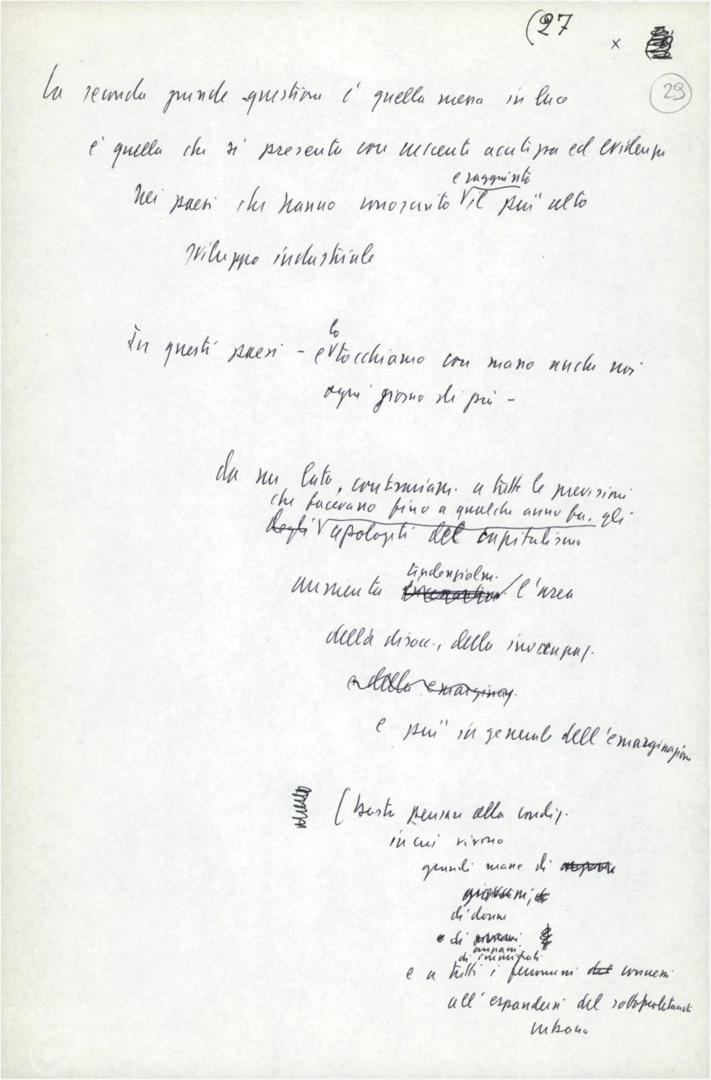 (27 x
29
La seconda grande questione è quella messa in luce
è quella che si presenta con crescente acutezza ed evidenza
nei paesi che hanno conosciuto e raggiunto il più alto
sviluppo industriale
In questi paesi - e lo tocchiamo con mano anche noi
ogni giorno di più -
da un lato, contrariam. a tutte le previsioni
che facevano fino a qualche anno fa, gli
degli apologeti del capitalismo
tendenzialm.
aumenta l'area
della disocc., della inoccupaz.
e della emarginaz.
e più in generale dell'emarginazione
(basta pensare alla condiz.
in cui vivono
grandi masse di
giovani, di
di donne
e di
anziani
di immigrati
e a tutti i fenomeni connessi
all'espandersi del sottoproletariato
urbano